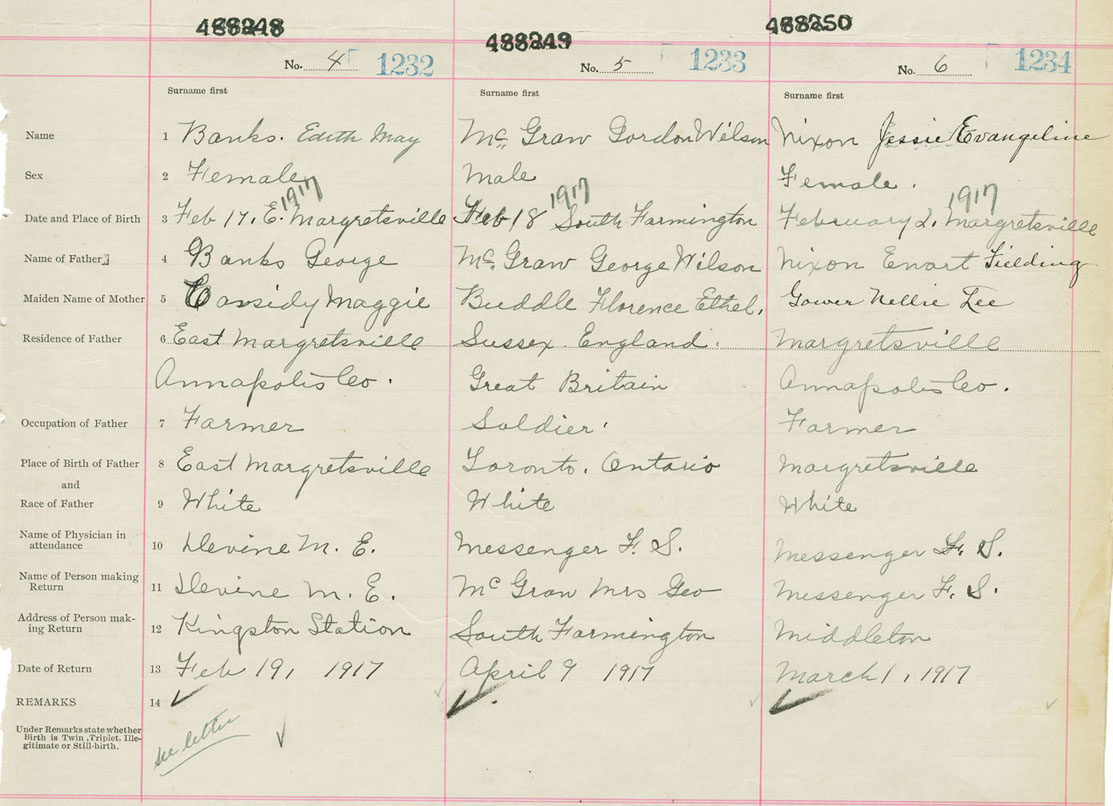 488248 488249 488250
No. 4 1232 No. 5 1233 No. 6 1234
Surname first Surname first Surname first
Name 1 Banks. Edith May Mc Graw Gordon Wilson Nixon Jessie Evangeline
Sex 2 Female Male Female.
1917 1917 1917
Date and Place of Birth 3 Feb 17. E. Margretsville Feb 18 South Farmington February 2, Margretsville
Name of Father 4 Banks George Mc Graw George Wilson Nixon Enart Fielding
Maiden Name of Mother 5 Cassidy Maggie Buddle Florence Ethel. Gower Nellie Lee
Residence of Father 6 East Margretsville Sussex England. Margretsville
Annapolis Co. Great Britain Annapolis Co.
Occupation of Father 7 Farmer Soldier. Farmer
Place of Birth of Father 8 East Margretsville Toronto. Ontario Margretsville
and
Race of Father 9 White White White
Name of Physician in
attendance 10 Devine M. E. Messenger F. S. Messenger F. S.
Name of Person making
Return 11 Devine M. E. Mc Graw Mrs Geo Messenger F. S.
Address of Person mak-
ing Return 12 Kingston Station South Farmington Middleton
Date of Return 13 Feb 19, 1917 April 9 1917 March 1, 1917
REMARKS 14
Under Remarks state whether
Birth is Twin, Triplet, Ille-
gitimate or Still-birth.
see letter